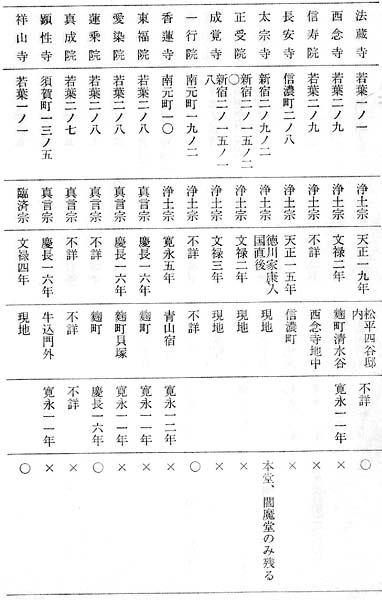 法蔵寺 若葉一ノ一 浄土宗 天正一九年 松平四谷邸内 不詳 ○
西念寺 若葉二ノ九 浄土宗 文禄二年 麴町清水谷 寛永一一年 ×
信寿院 若葉二ノ九 浄土宗 不詳 西念寺地中 ×
長安寺 信濃町二ノ八 浄土宗 天正一五年 信濃町 ×
太宗寺 新宿二ノ九ノ二 浄土宗 徳川家康入国直後 現地 本堂、閻魔堂のみ残る
正受院 新宿二ノ一五ノ二〇 浄土宗 文禄二年 現地 ×
成覚寺 新宿二ノ一五ノ一八 浄土宗 文禄三年 現地 ×
一行院 南元町一九ノ二 浄土宗 不詳 不詳 ○
香蓮寺 南元町一〇 浄土宗 寛永五年 青山宿 寛永一二年 ×
東福院 若葉二ノ八 真言宗 慶長一六年 麴町 寛永一一年 ×
愛染院 若葉二ノ八 真言宗 慶長一六年 麴町貝塚 寛永一一年 ×
蓮乗院 若葉二ノ八 真言宗 不詳 麴町 慶長一六年 ○
真成院 若葉二ノ七 真言宗 不詳 不詳 不詳 ×
顕性寺 須賀町一三ノ五 真言宗 慶長一六年 牛込門外 寛永一一年 ×
祥山寺 若葉一ノ一 臨済宗 文禄四年 現地 ○